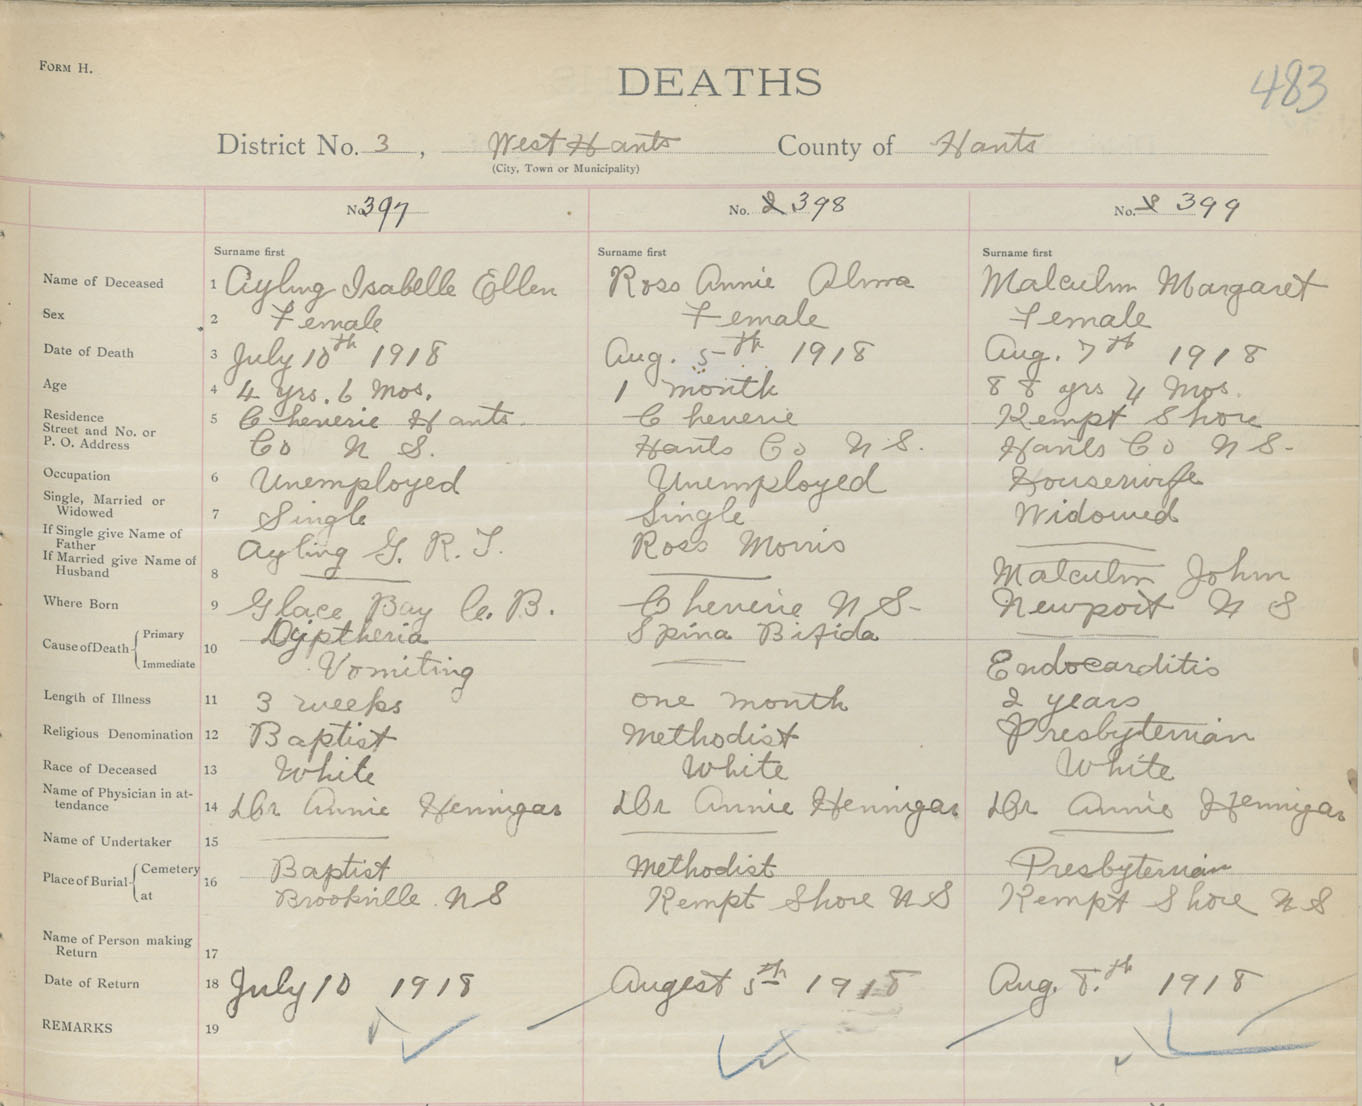 FORM H.
DEATHS
483
District No. 3, West Hants County of Hants
(City, Town or Municipality)
No. 397 No. 2 398 No. 399
Surname first Surname first Surname first
Name of Deceased 1 Ayling Isabelle Ellen Ross Annie Alma Malculm Margaret
Sex 2 Female Female Female
Date of Death 3 July 10th 1918 Aug. 5th 1918 Aug. 7th 1918
Age 4 4 yrs. 6 Mos. 1 month 88 yrs 4 Mos.
Residence 5 Cheverie Hants Cheverie Kempt Shore
Street and No. or
P. O. Address Co N S. Hants Co N S. Hants Co N S-
Occupation 6 Unemployed Unemployed Housewife
Single, Married or
Widowed 7 Single Single Widowed
If Single give Name of
Father Ayling G. R. T. Ross Morris
If Married give Name of
Husband 8 Malculm John
Where Born 9 Glace Bay C. B. Cheverie N S- Newport N S
Cause of Death Primary 10 Dyptheria Spina Bifida
Immediate Vomiting Endocarditis
Length of Illness 11 3 weeks one month 2 years
Religious Denomination 12 Baptist Methodist Presbyterian
Race of Deceased 13 White White White
Name of Physician in at-
tendance 14 Dr Annie Hennigar Dr Annie Hennigar Dr Annie Hennigar
Name of Undertaker 15
Place of Burial Cemetery 16 Baptist Methodist Presbyterian
at Brookville N S Kempt Shore N S Kempt Shore N S
Name of Person making
Return 17
Date of Return 18 July 10 1918 Augest 5th 1918 Aug. 8.th 1918
REMARKS 19